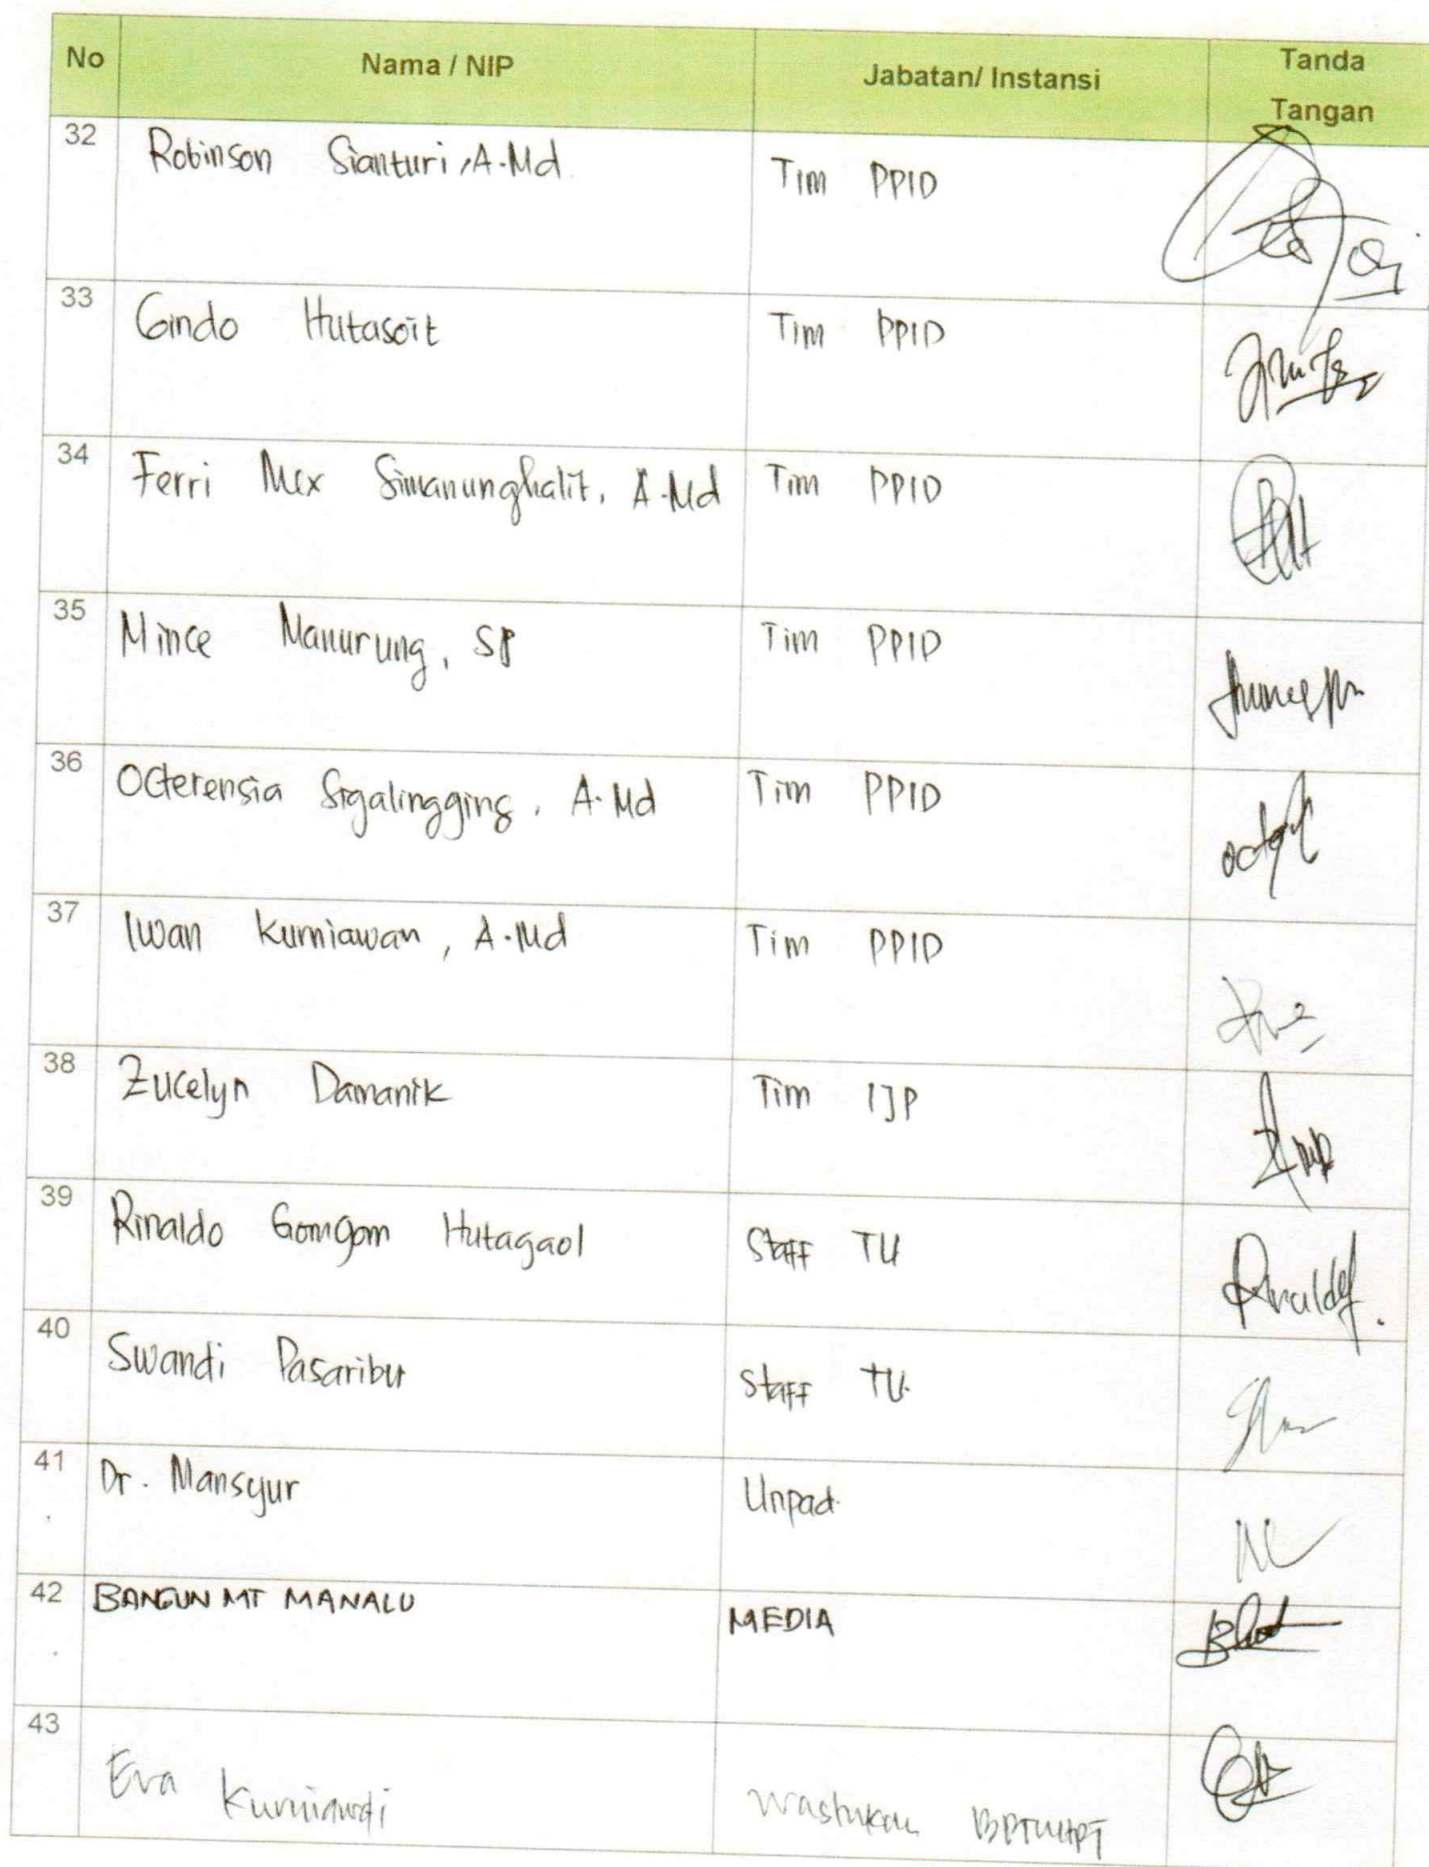 No Nama / NIP Jabatan/ Instansi Tanda
Tangan
32 Robinson Sianturi, A.Md Tim PPID
33 Gindo Hutasoit Tim PPID
34 Ferri Mex Simanungkalit, A.Md Tim PPID
35 Mince Manurung, SP Tim PPID
36 Octerensia Sigalingging, A.Md Tim PPID
37 Iwan Kurniawan, A.Md Tim PPID
38 Zucelyn Damanik Tim IJP
39 Rinaldo Gomgom Hutagaol Staff TU
40 Swandi Pasaribu Staff TU
41 Dr. Mansyur Unpad
42 BANGUN MT MANALU MEDIA
43 Eva